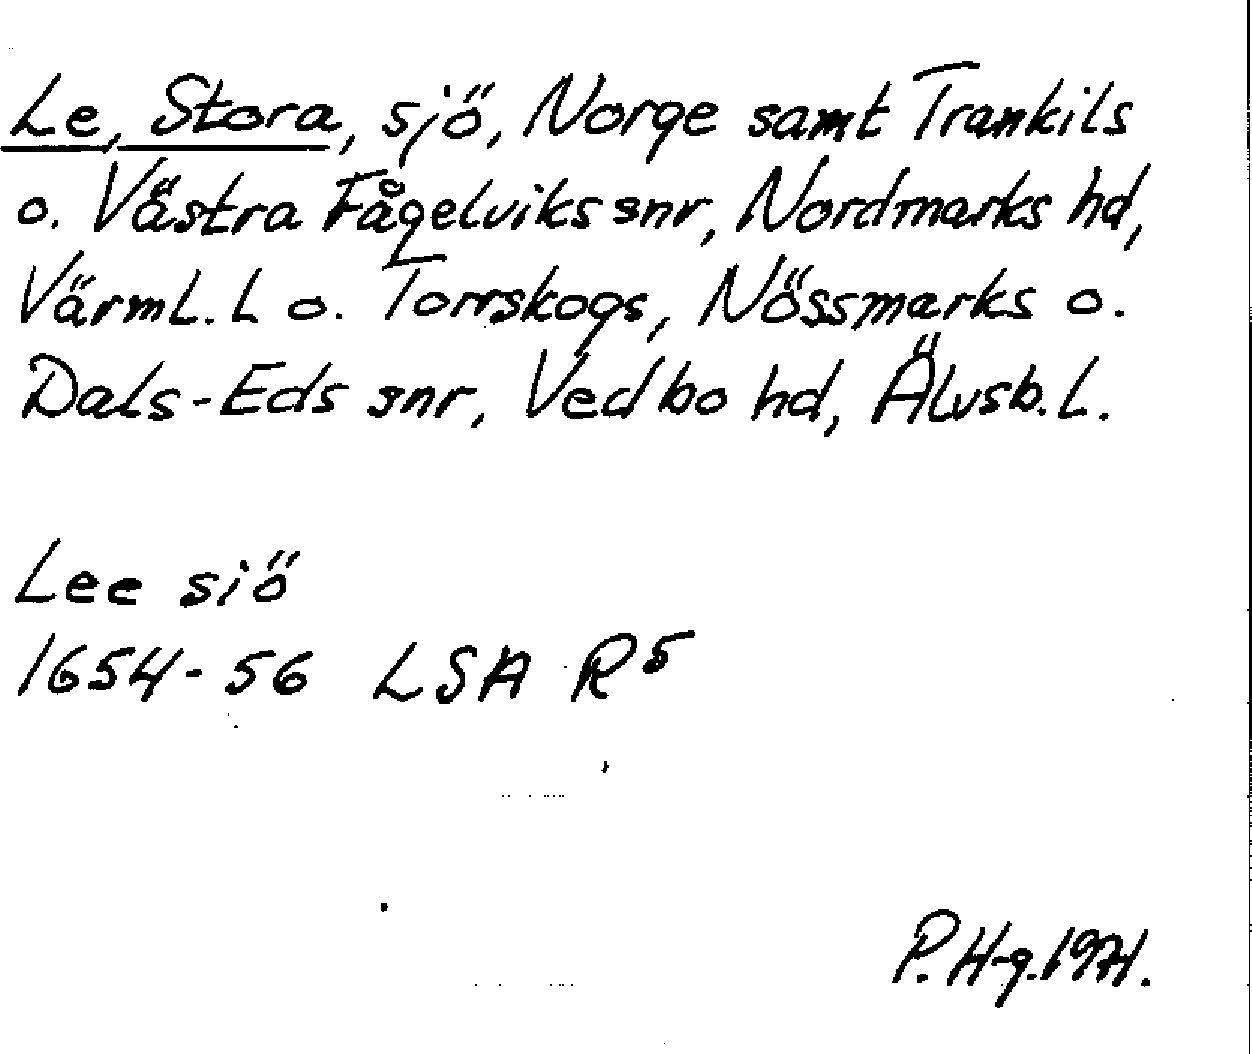 Le, Stora, sjö, Norge samt Trankils
o. Västra Fågelviks snr, Nordmarks hd,
Värml. l o. Torrskogs, Nössmarks o.
Dals-Eds snr, Vedbo hd, Älvsb. l.
Lee siö
1654-56 LSA R5
P. H-g. 1971.